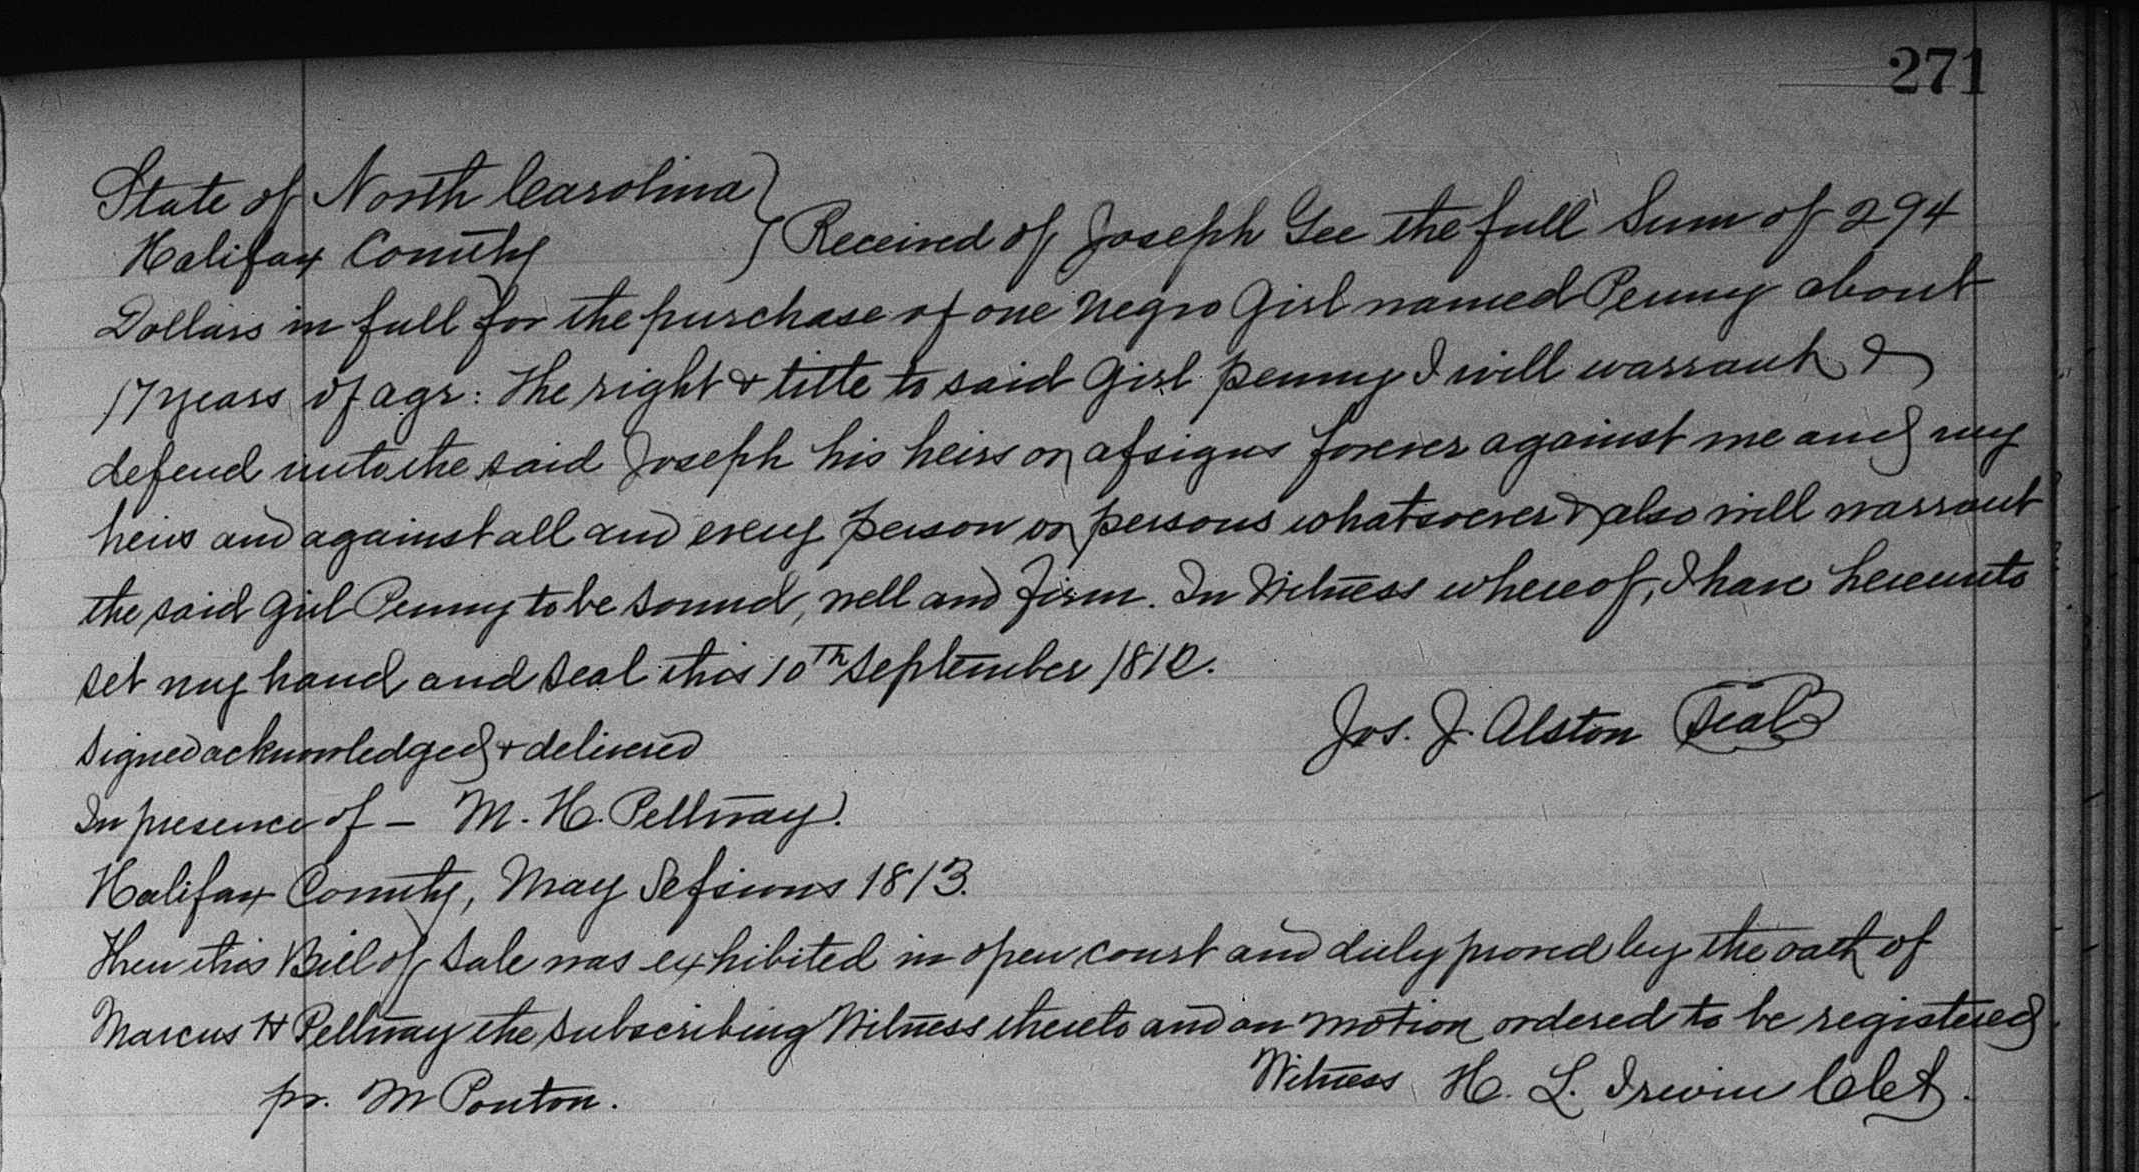 271
State of North Carolina }
Halifax County } Received of Joseph Gee the full Sum of 294
Dollars in full for the purchase of one negro Girl named Penny about
17 years of agr: the right & title to said Girl penny I will warrant &
defend unto the said Joseph his heirs or assigns forever against me and my
heirs and against all and every person or persons whatsoever & also will warrant
the said girl Penny to be sound, well and firm. In Witness whereof, I have hereunto
set my hand and seal this 10th september 1810.
Signed acknowledged & delivered
Jos. J. Alston (Seal)
In presence of – M. H. Pettway.
Halifax County, May Sessions 1813.
Then this Bill of Sale was exhibited in open court and duly proved by the oath of
Marcus H Pettway the subscribing Witness thereto and on motion ordered to be registered.
Witness H. L. Irwin Clet.
pr. M Ponton.